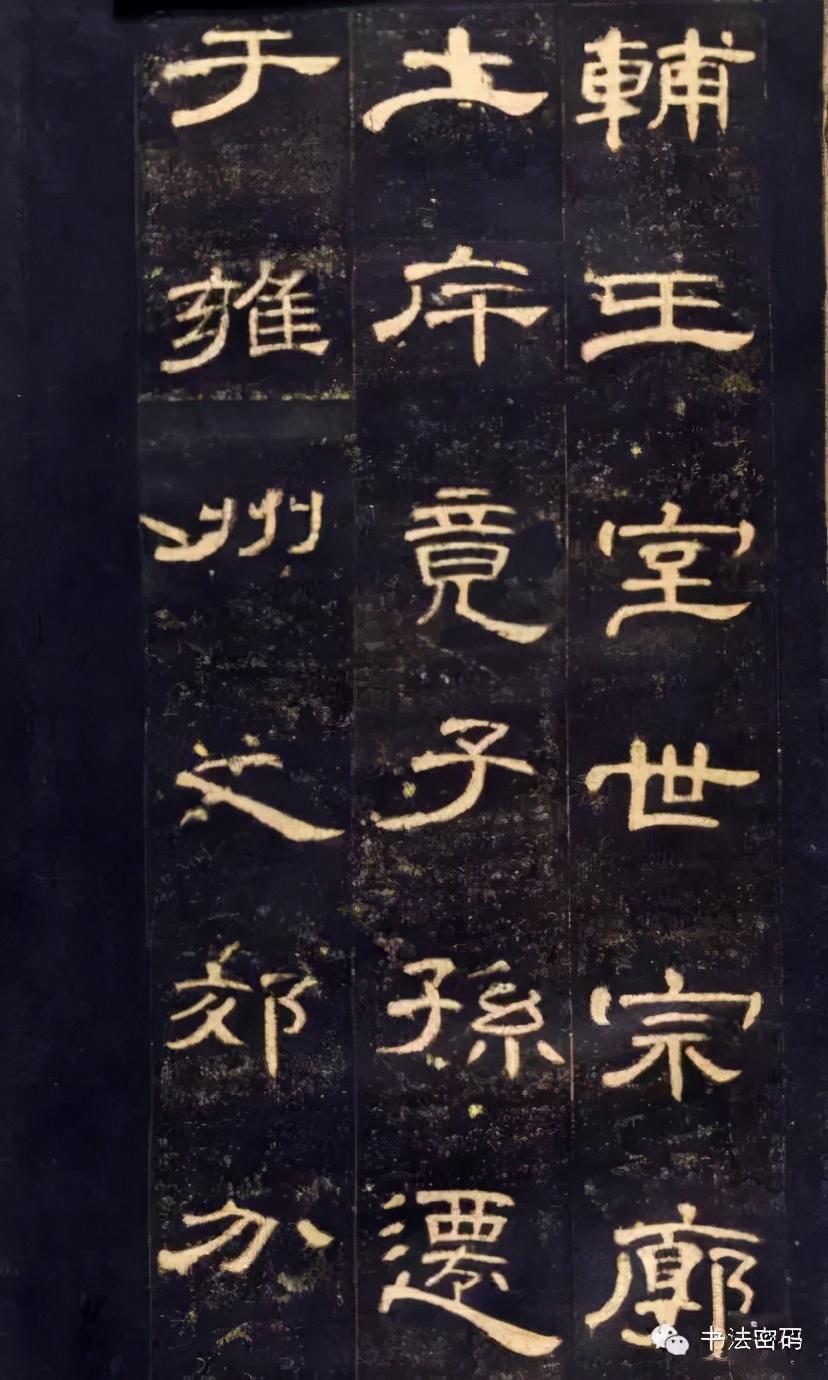 輔王室世宗廓
土斥竟子孫遷
于雍州之郊分
书法密码